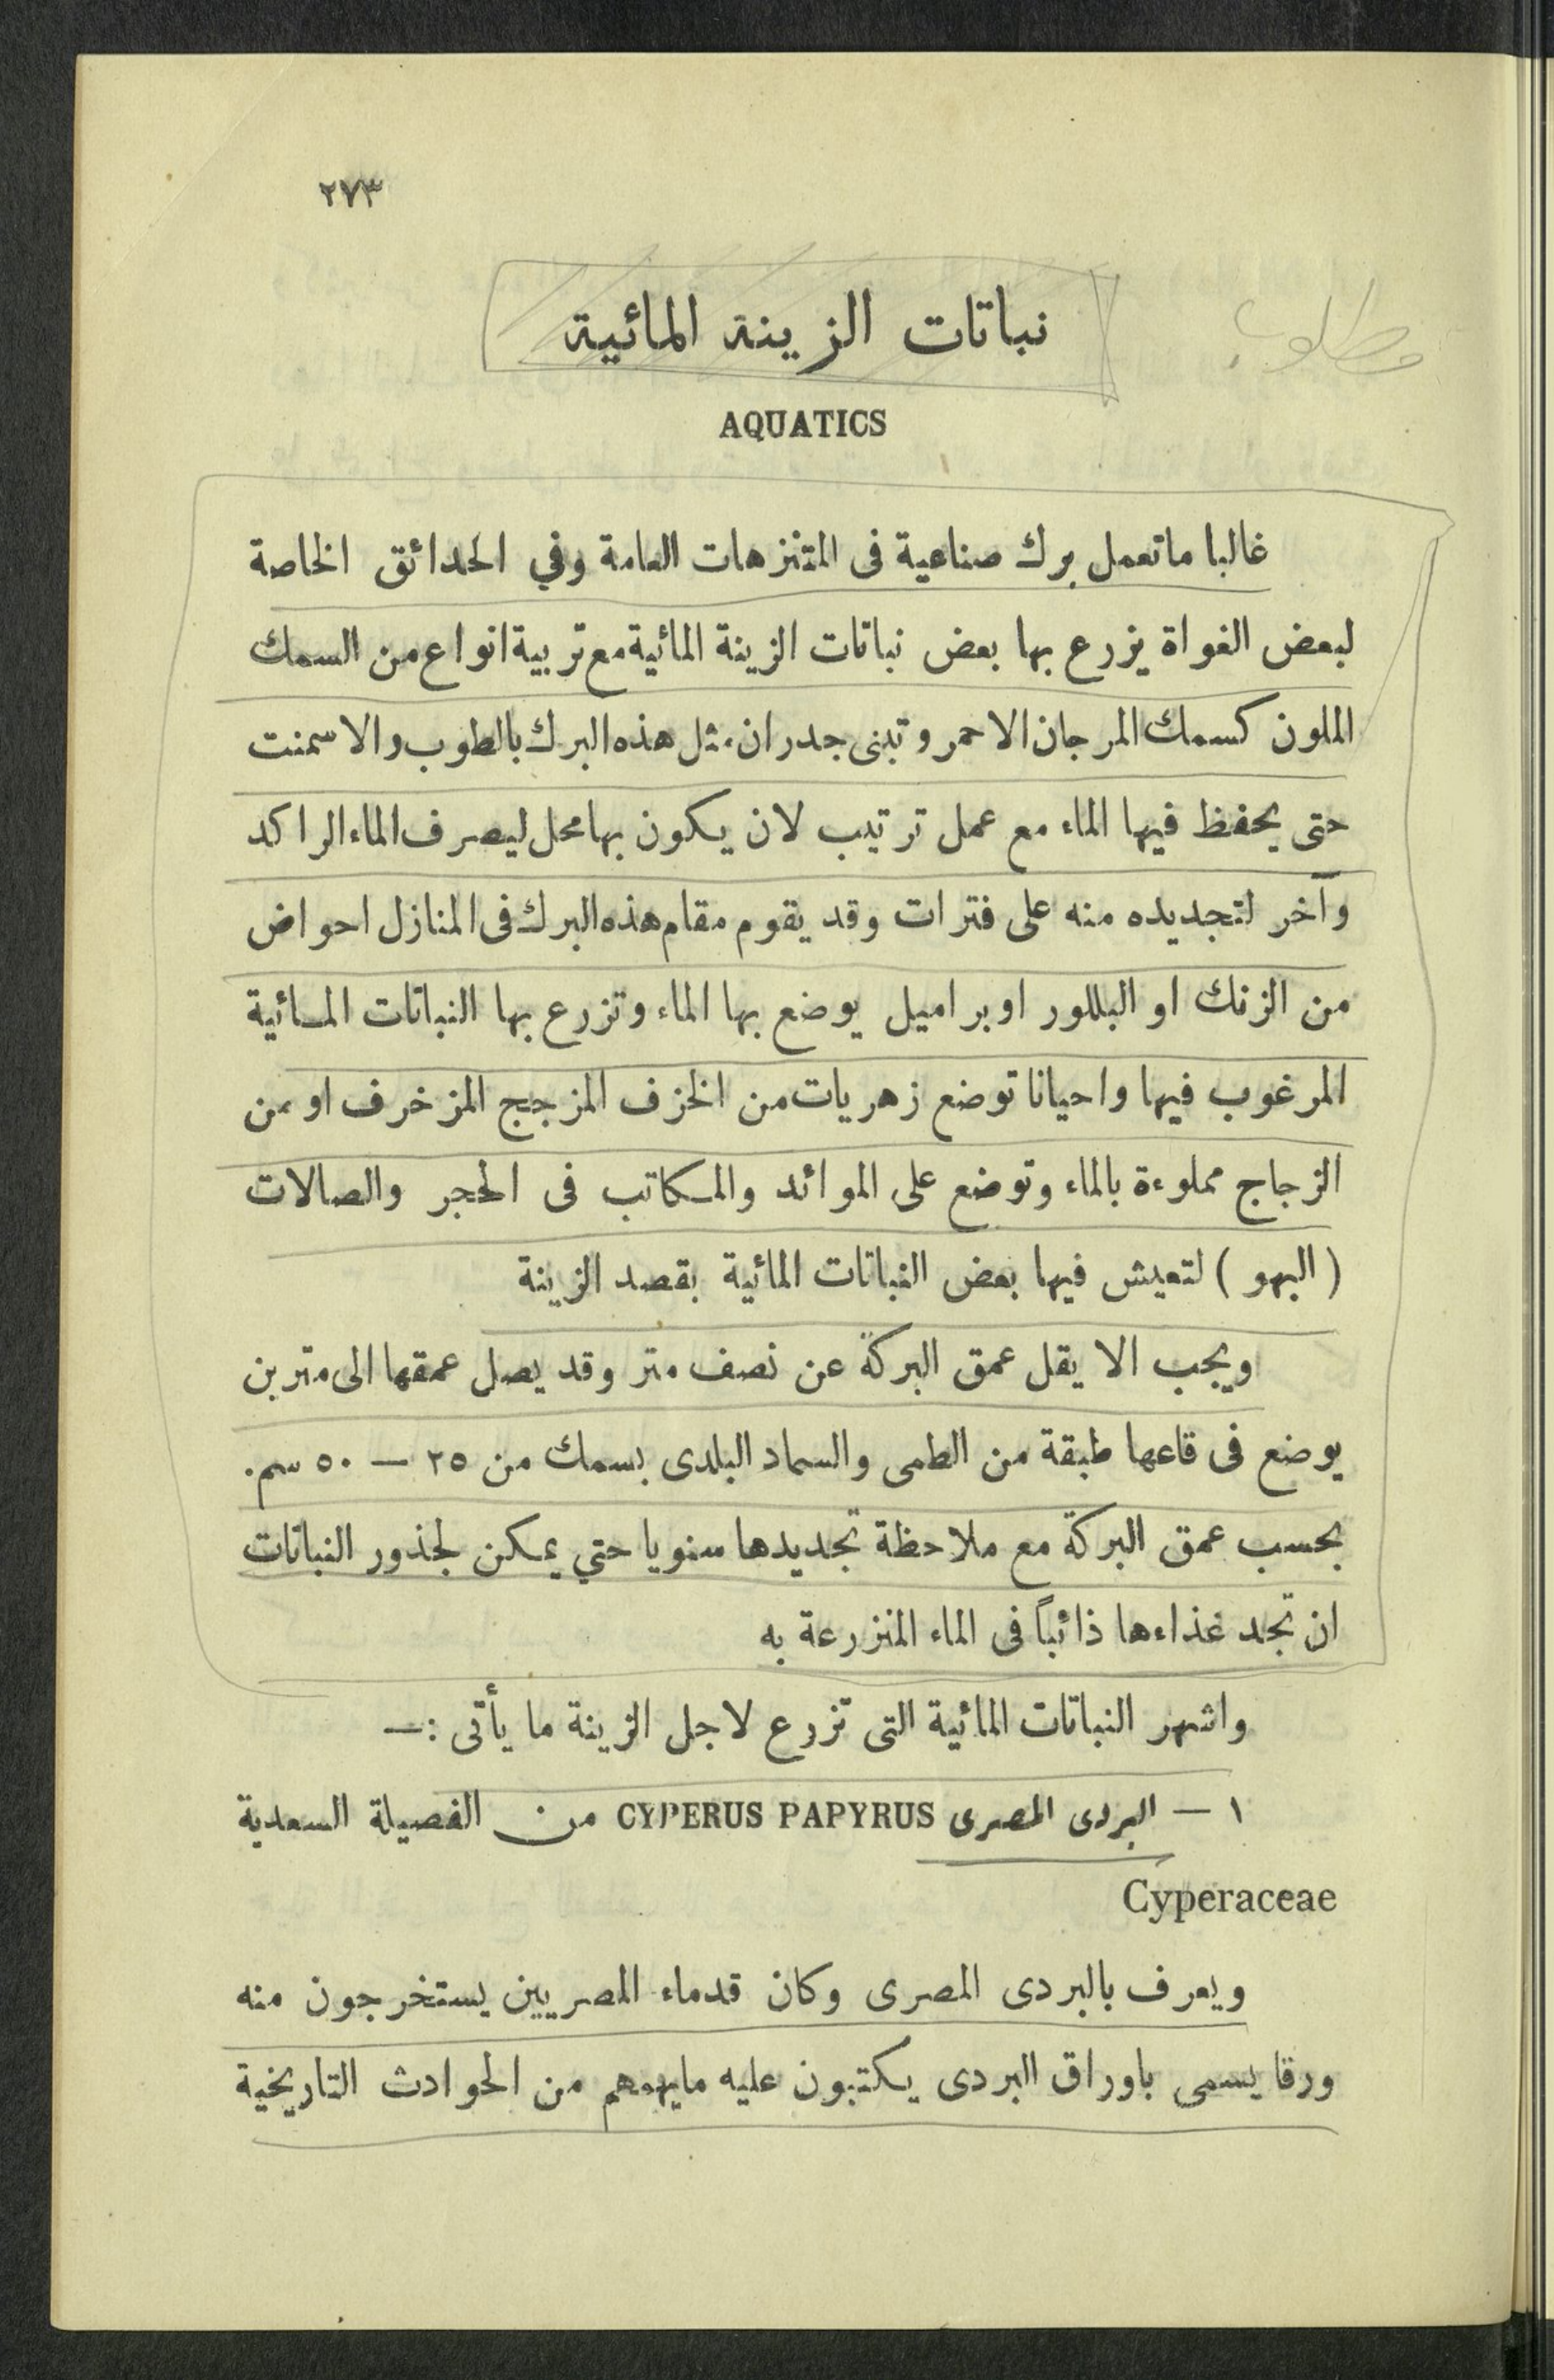 ٢٧٣
نباتات الزينة المائية
مطلوب
AQUATICS
غالبا ماتعمل برك صناعية فى المتنزهات العامة وفي الحدائق الخاصة
لبعض الغواة يزرع بها بعض نباتات الزينة المائية مع تربية انواع من السمك
الملون كسمك المرجان الاحمر وتبنى جدران مثل هذه البرك بالطوب والاسمنت
حتى يحفظ فيها الماء مع عمل ترتيب لان يكون بها محل ليصرف الماء الراكد
وآخر لتجديده منه على فترات وقد يقوم مقام هذه البرك فى المنازل احواض
من الزنك او البللور او براميل يوضع بها الماء وتزرع بها النباتات المائية
المرغوب فيها واحيانا توضع زهريات من الخزف المزجج المزخرف او من
الزجاج مملوءة بالماء وتوضع على الموائد والمكاتب فى الحجر والصالات
( البهو ) لتعيش فيها بعض النباتات المائية بقصد الزينة
ويجب الا يقل عمق البركة عن نصف متر وقد يصل عمقها الى مترين
يوضع فى قاعها طبقة من الطمى والسماد البلدى بسمك من ٢٥ — ٥٠ سم.
بحسب عمق البركة مع ملاحظة تجديدها سنويا حتي يمكن لجذور النباتات
ان تجد غذاءها ذائباً فى الماء المنزرعة به
واشهر النباتات المائية التى تزرع لاجل الزينة ما يأتى :—
١ — البردى المصرى CYPERUS PAPYRUS من الفصيلة السعدية
Cyperaceae
ويعرف بالبردى المصرى وكان قدماء المصريين يستخرجون منه
ورقا يسمى باوراق البردى يكتبون عليه مايهمهم من الحوادث التاريخية